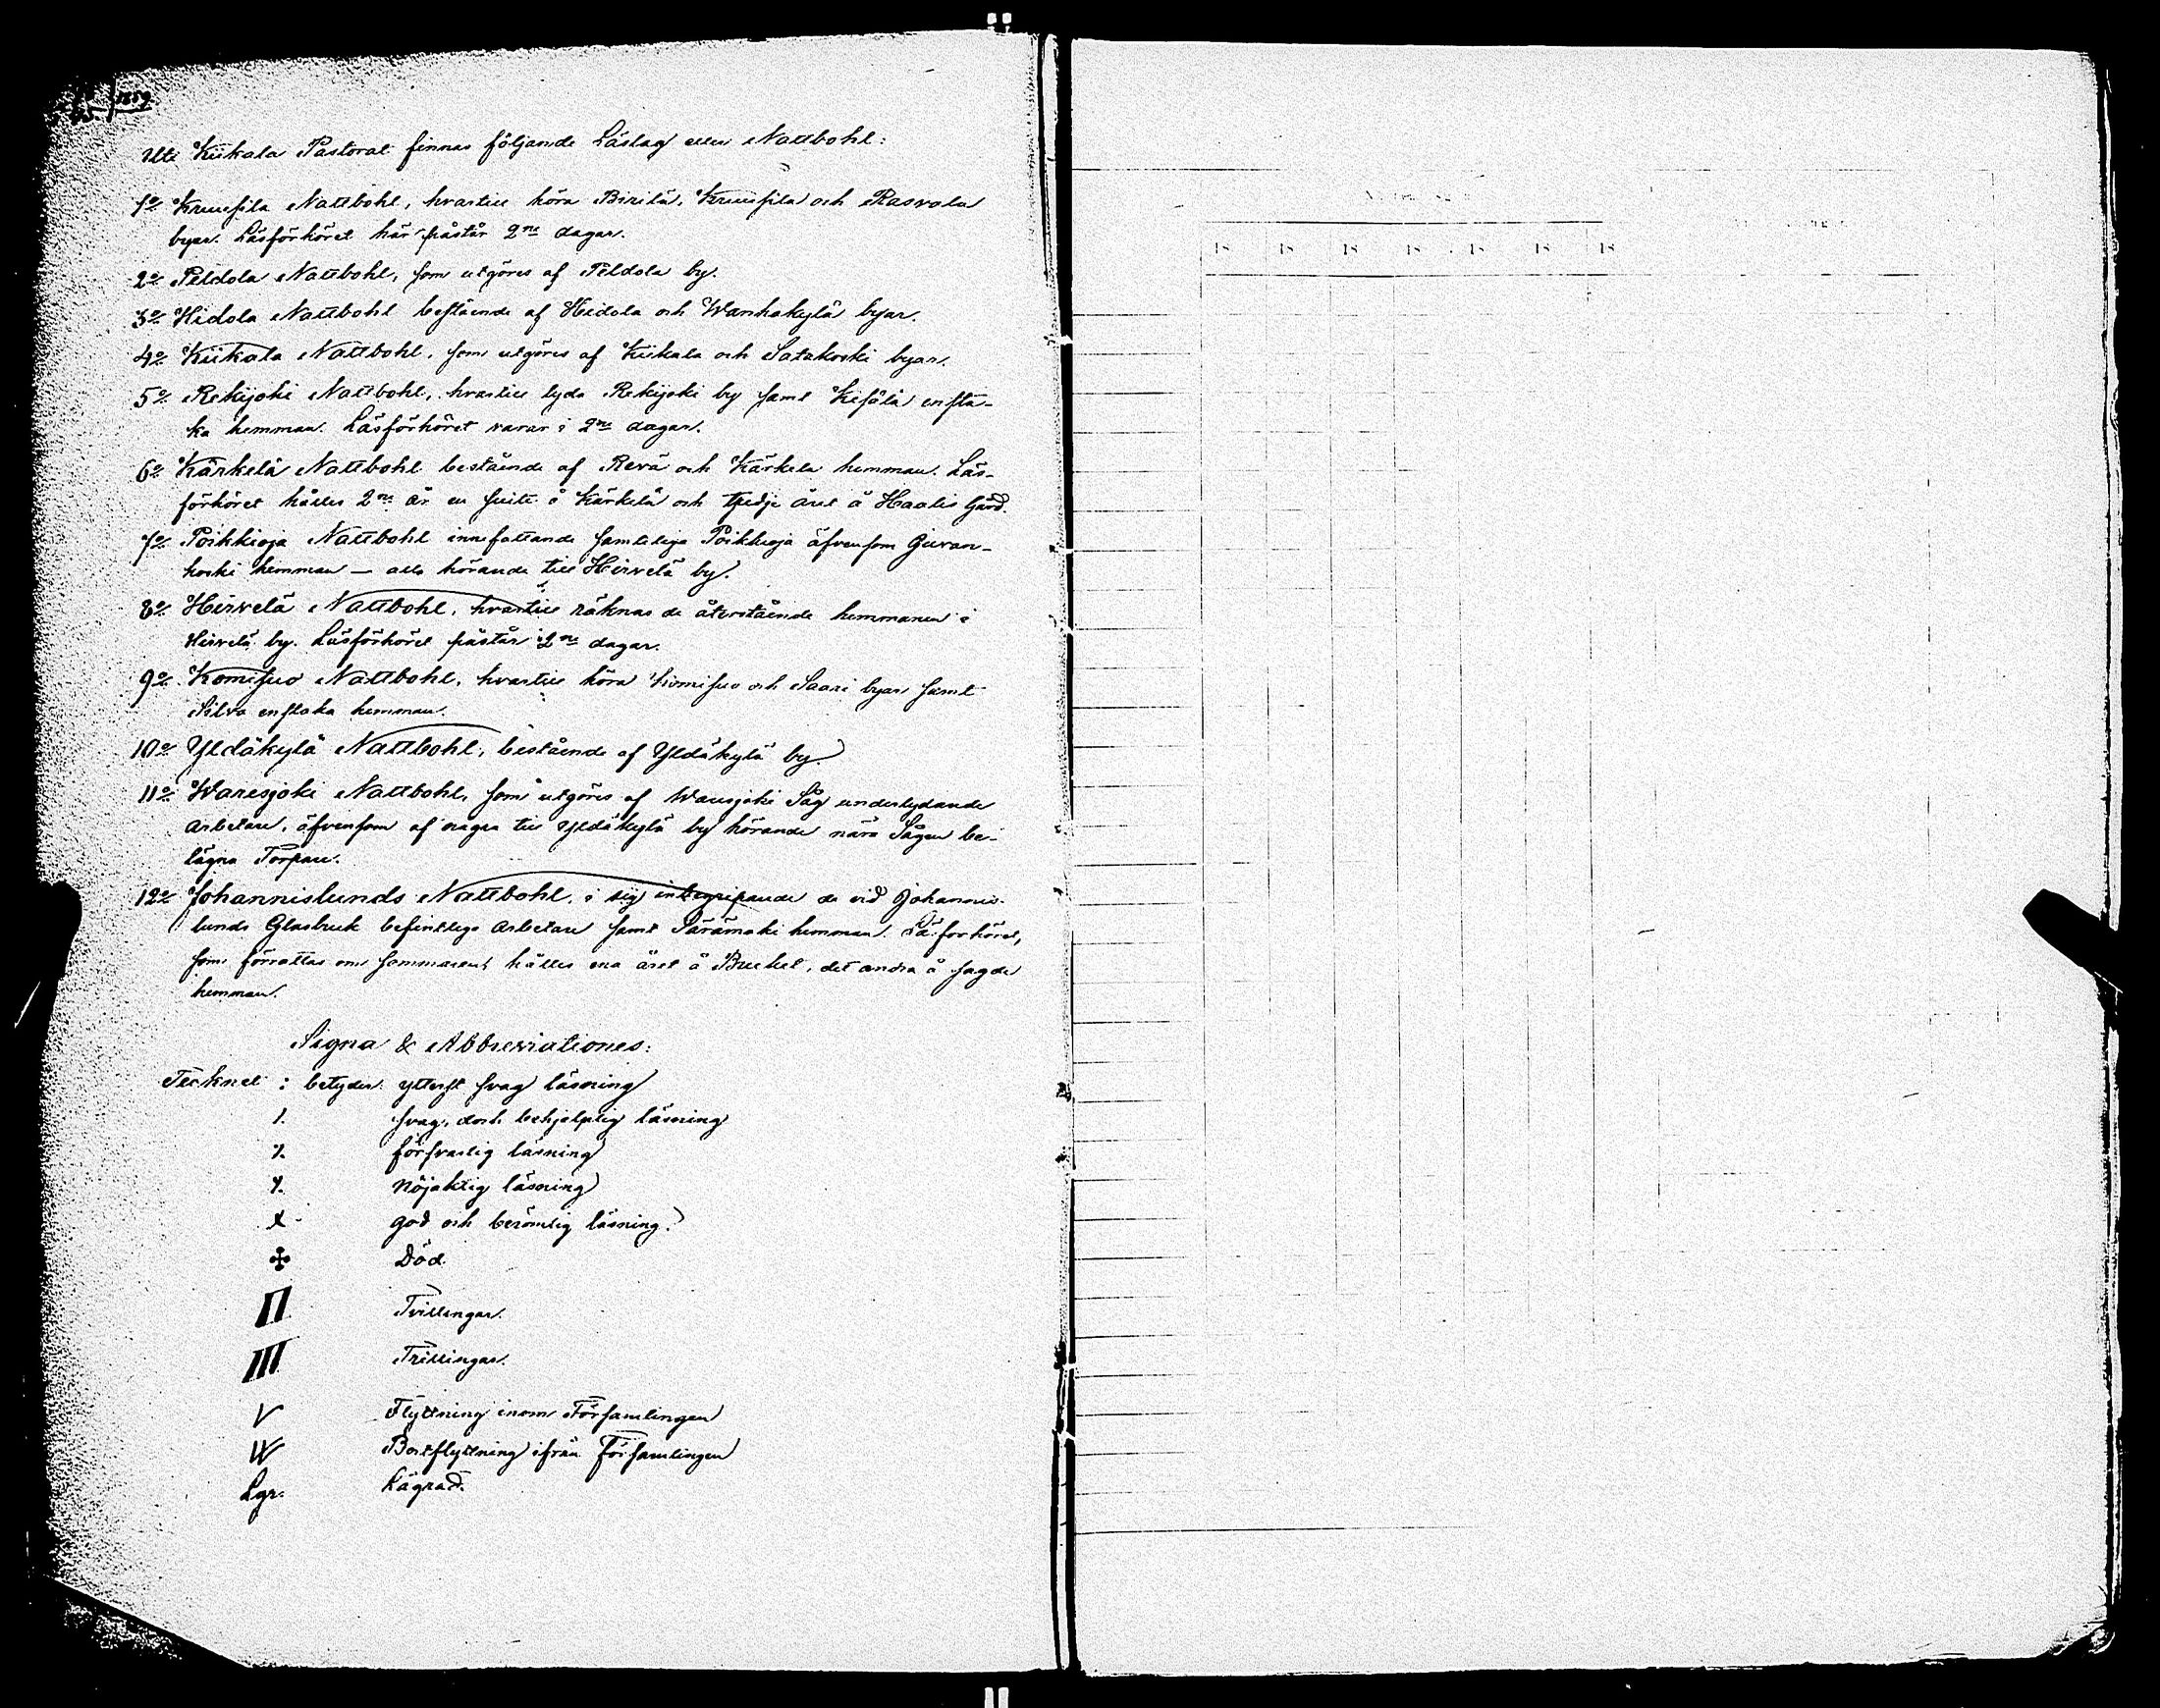 1859
Uti Kiikala Pastorat finnas följande Läslag eller Nattbohl:
1o Kruusila Nattbohl, hvartill höra Pirilä, Kruusila och Rasvala
byar. Läsförhöret här påstår 2ne dagar.
2o Peldola Nattbohl, som utgöres af Peldola by.
3o Hidola Nattbohl bestående af Hidola och Wanhakylä byar.
4o Kiikala Nattbohl, som utgöres af Kiikala och Satakoski byar.
5o Rekijoki Nattbohl, hvartill lyda Rekijoki by samt Kesälä ensta-
ka hemman. Läsförhöret varar i 2ne dagar.
6o Kärkelä Nattbohl bestående af Revä och Kärkelä hemman. Läs-
förhöret hålles 2ne år en suite å Kärkelä och tredje året å Haalis Gård.
7o Poikkioja Nattbohl innefattande samtliga Poikkioja äfvensom Juvan-
koski hemman — alla hörande till Hirvelä by.
8o Hirvelä Nattbohl, hvartill räknas de återstående hemmanen i
Hirvelä by. Läsförhöret påstår i 2ne dagar.
9o Komisuo Nattbohl, hvartill höra Komisuo och Saari byar samt
Silva enstaka hemman.
10o Yldäkylä Nattbohl, bestående af Yldäkylä by.
11o Waresjoki Nattbohl, som utgöres af Waresjoki Såg underlydande
arbetare, äfvensom af några till Yldäkylä by hörande nära Sågen be-
lägna Torpare.
12o Johannislunds Nattbohl, i sig inbegripande de vid Johannis-
lunds Glasbruk befintliga arbetare samt Särämäki hemman. Läsförhöret,
som förrättas om sommaren, hålles ena året å Bruket, det andra å sagde
hemman.
Signa & Abbreviationes:
Tecknet : betyder ytterst svag läsning
/. svag, dock behjelplig läsning
försvarlig läsning
nöjaktig läsning
god och berömlig läsning.
Död.
II Tvillingar.
III Trillingar.
V Flyttning inom Församlingen
W Bortflyttning ifrån Församlingen
Lgr. Lägrad.
18 18 18 18 18 18 18